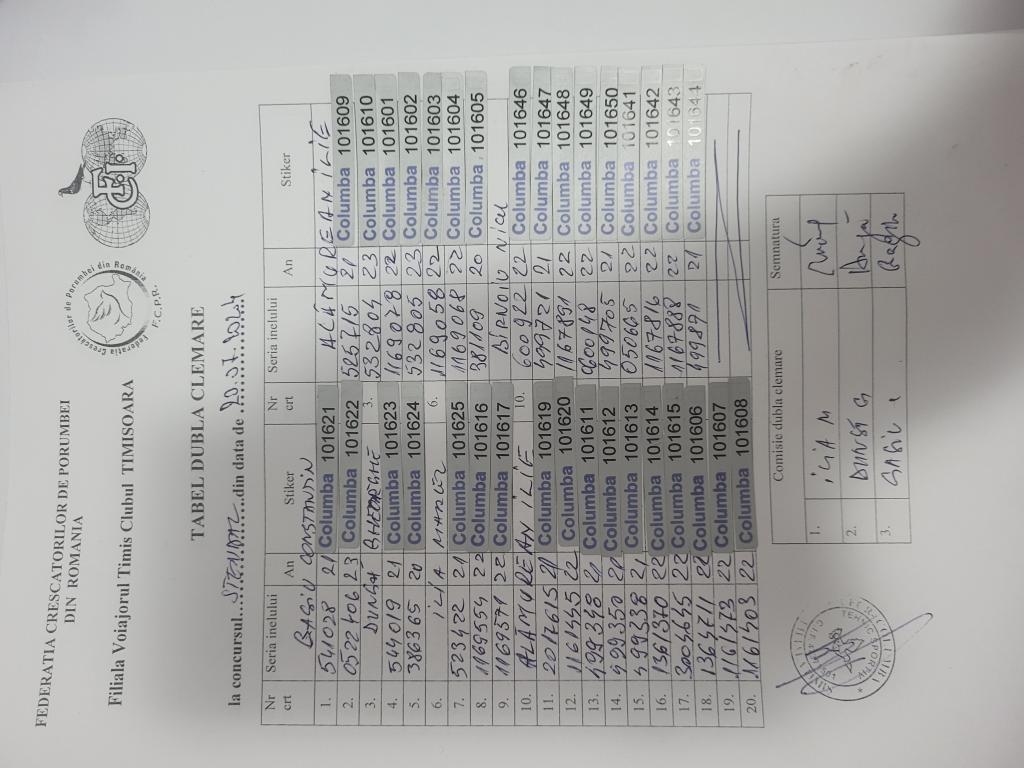 FEDERATIA CRESCATORILOR DE PORUMBEI
DIN ROMANIA
Filiala Voiajorul Timis Clubul TIMISOARA
Federatia Crescatorilor de Porumbei din România
F.C.P.R.
FCI
TABEL DUBLA CLEMARE
la concursul....STENDAL......din data de .20.07.2024
Nr crt Seria inelului An Stiker Nr crt Seria inelului An Stiker
BAGIU CONSTANDIN ALĂMUREAN ILIE
1. 541028 21 Columba 101621
2. 0522406 23 Columba 101622 525715 21 Columba 101609
3. DUNGĂ GHEORGHE 3. 532804 23 Columba 101610
4. 544019 21 Columba 101623 1169078 22 Columba 101601
5. 386365 20 Columba 101624 532805 23 Columba 101602
6. ILIA 6. 1169058 22 Columba 101603
7. 523422 21 Columba 101625 1169068 22 Columba 101604
8. 1169554 22 Columba 101616 381109 20 Columba 101605
9. 1169571 22 Columba 101617 BIRNOIU NICU
10. ALĂMUREAN ILIE 10. 600922 22 Columba 101646
11. 2017615 21 Columba 101619 499721 21 Columba 101647
12. 1161545 22 Columba 101620 1167891 22 Columba 101648
13. 499348 21 Columba 101611 0600148 22 Columba 101649
14. 499350 21 Columba 101612 499705 21 Columba 101650
15. 499338 21 Columba 101613 050665 22 Columba 101641
16. 1361370 22 Columba 101614 1167816 22 Columba 101642
17. 3004645 22 Columba 101615 1167888 22 Columba 101643
18. 1364711 22 Columba 101606 499871 21 Columba 101644
19. 1161573 22 Columba 101607
20. 1161503 22 Columba 101608
Comisie dubla clemare Semnatura
1. ILIA M
2. DUNGĂ G
3.